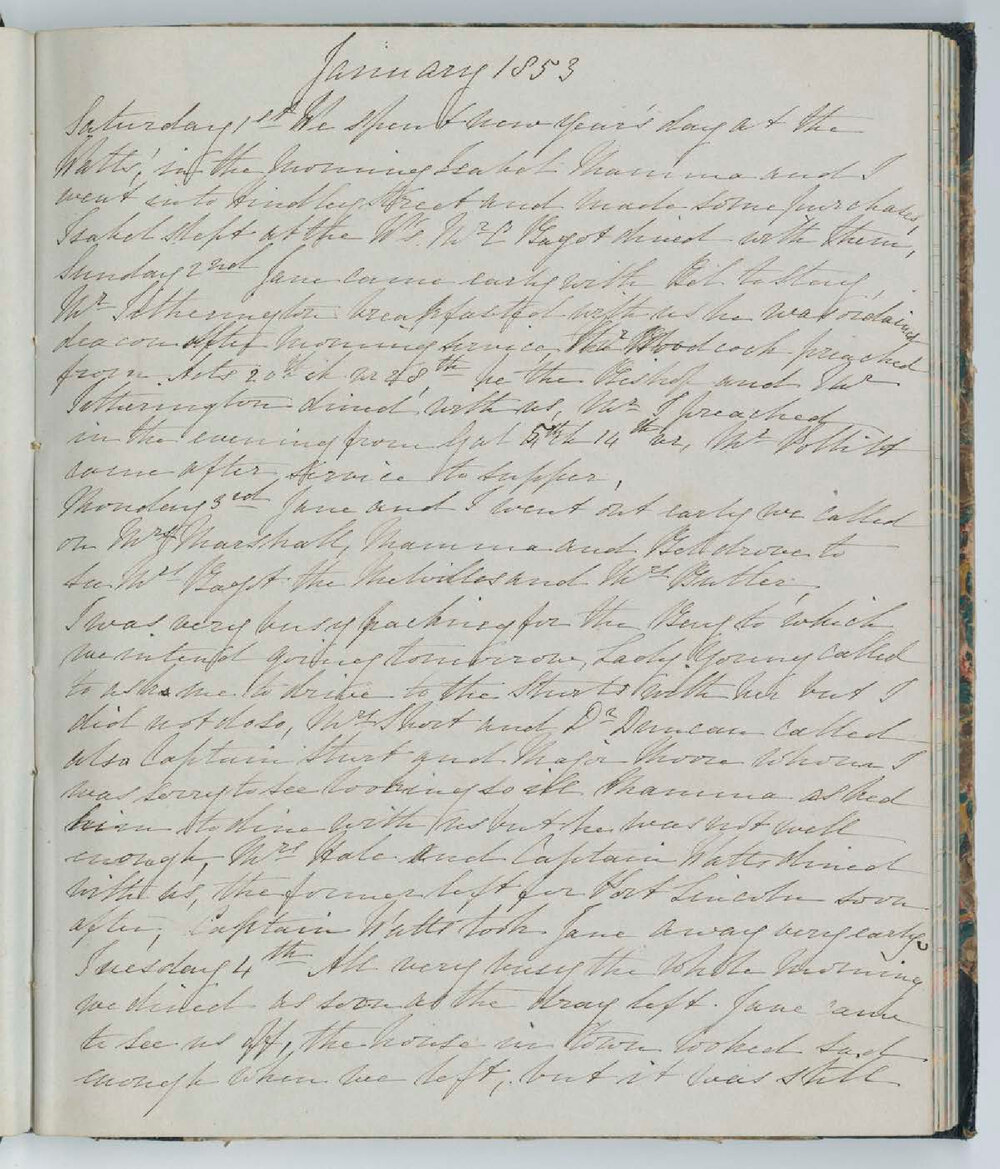 January 1853
Saturday 1st We spent new year's day at the
Watts', in the morning Isabel Mamma and I
went into Hindley Street and made some purchases,
Isabel slept at the W's, Mr C Bagot dined with them,
Sunday 2nd Jane came early with Bel to stay,
Mr Titherington breakfasted with us he was ordained
deacon after morning service, Mr Woodcock preached
from Acts 20th ch vr 28th he the Bishop and Mr
Titherington dined with us, Mr T preached
in the evening from Gal 5th ch 14th vr, Mr Pollitt
came after service to supper,
Monday 3rd Jane and I went out early we called
on Mrs Marshall, Mamma and Bel drove to
see Mrs Bagot the Melvilles and Mrs Butler,
I was very busy packing for the Bay to which
we intend going tomorrow, Lady Young called
to ask me to drive to the Sturts with her but I
did not do so, Mrs Short and Dr Duncan called
also Captain Sturt and Major Moore whom I
was sorry to see looking so ill Mamma asked
him to dine with us but he was not well
enough, Mrs Hale and Captain Watts dined
with us, the former left for Port Lincoln soon
after, Captain Watts took Jane away very early,
Tuesday 4th All very busy the whole morning
we dined as soon as the dray left. Jane came
to see us off, the house in town looked sad
enough when we left, but it was still